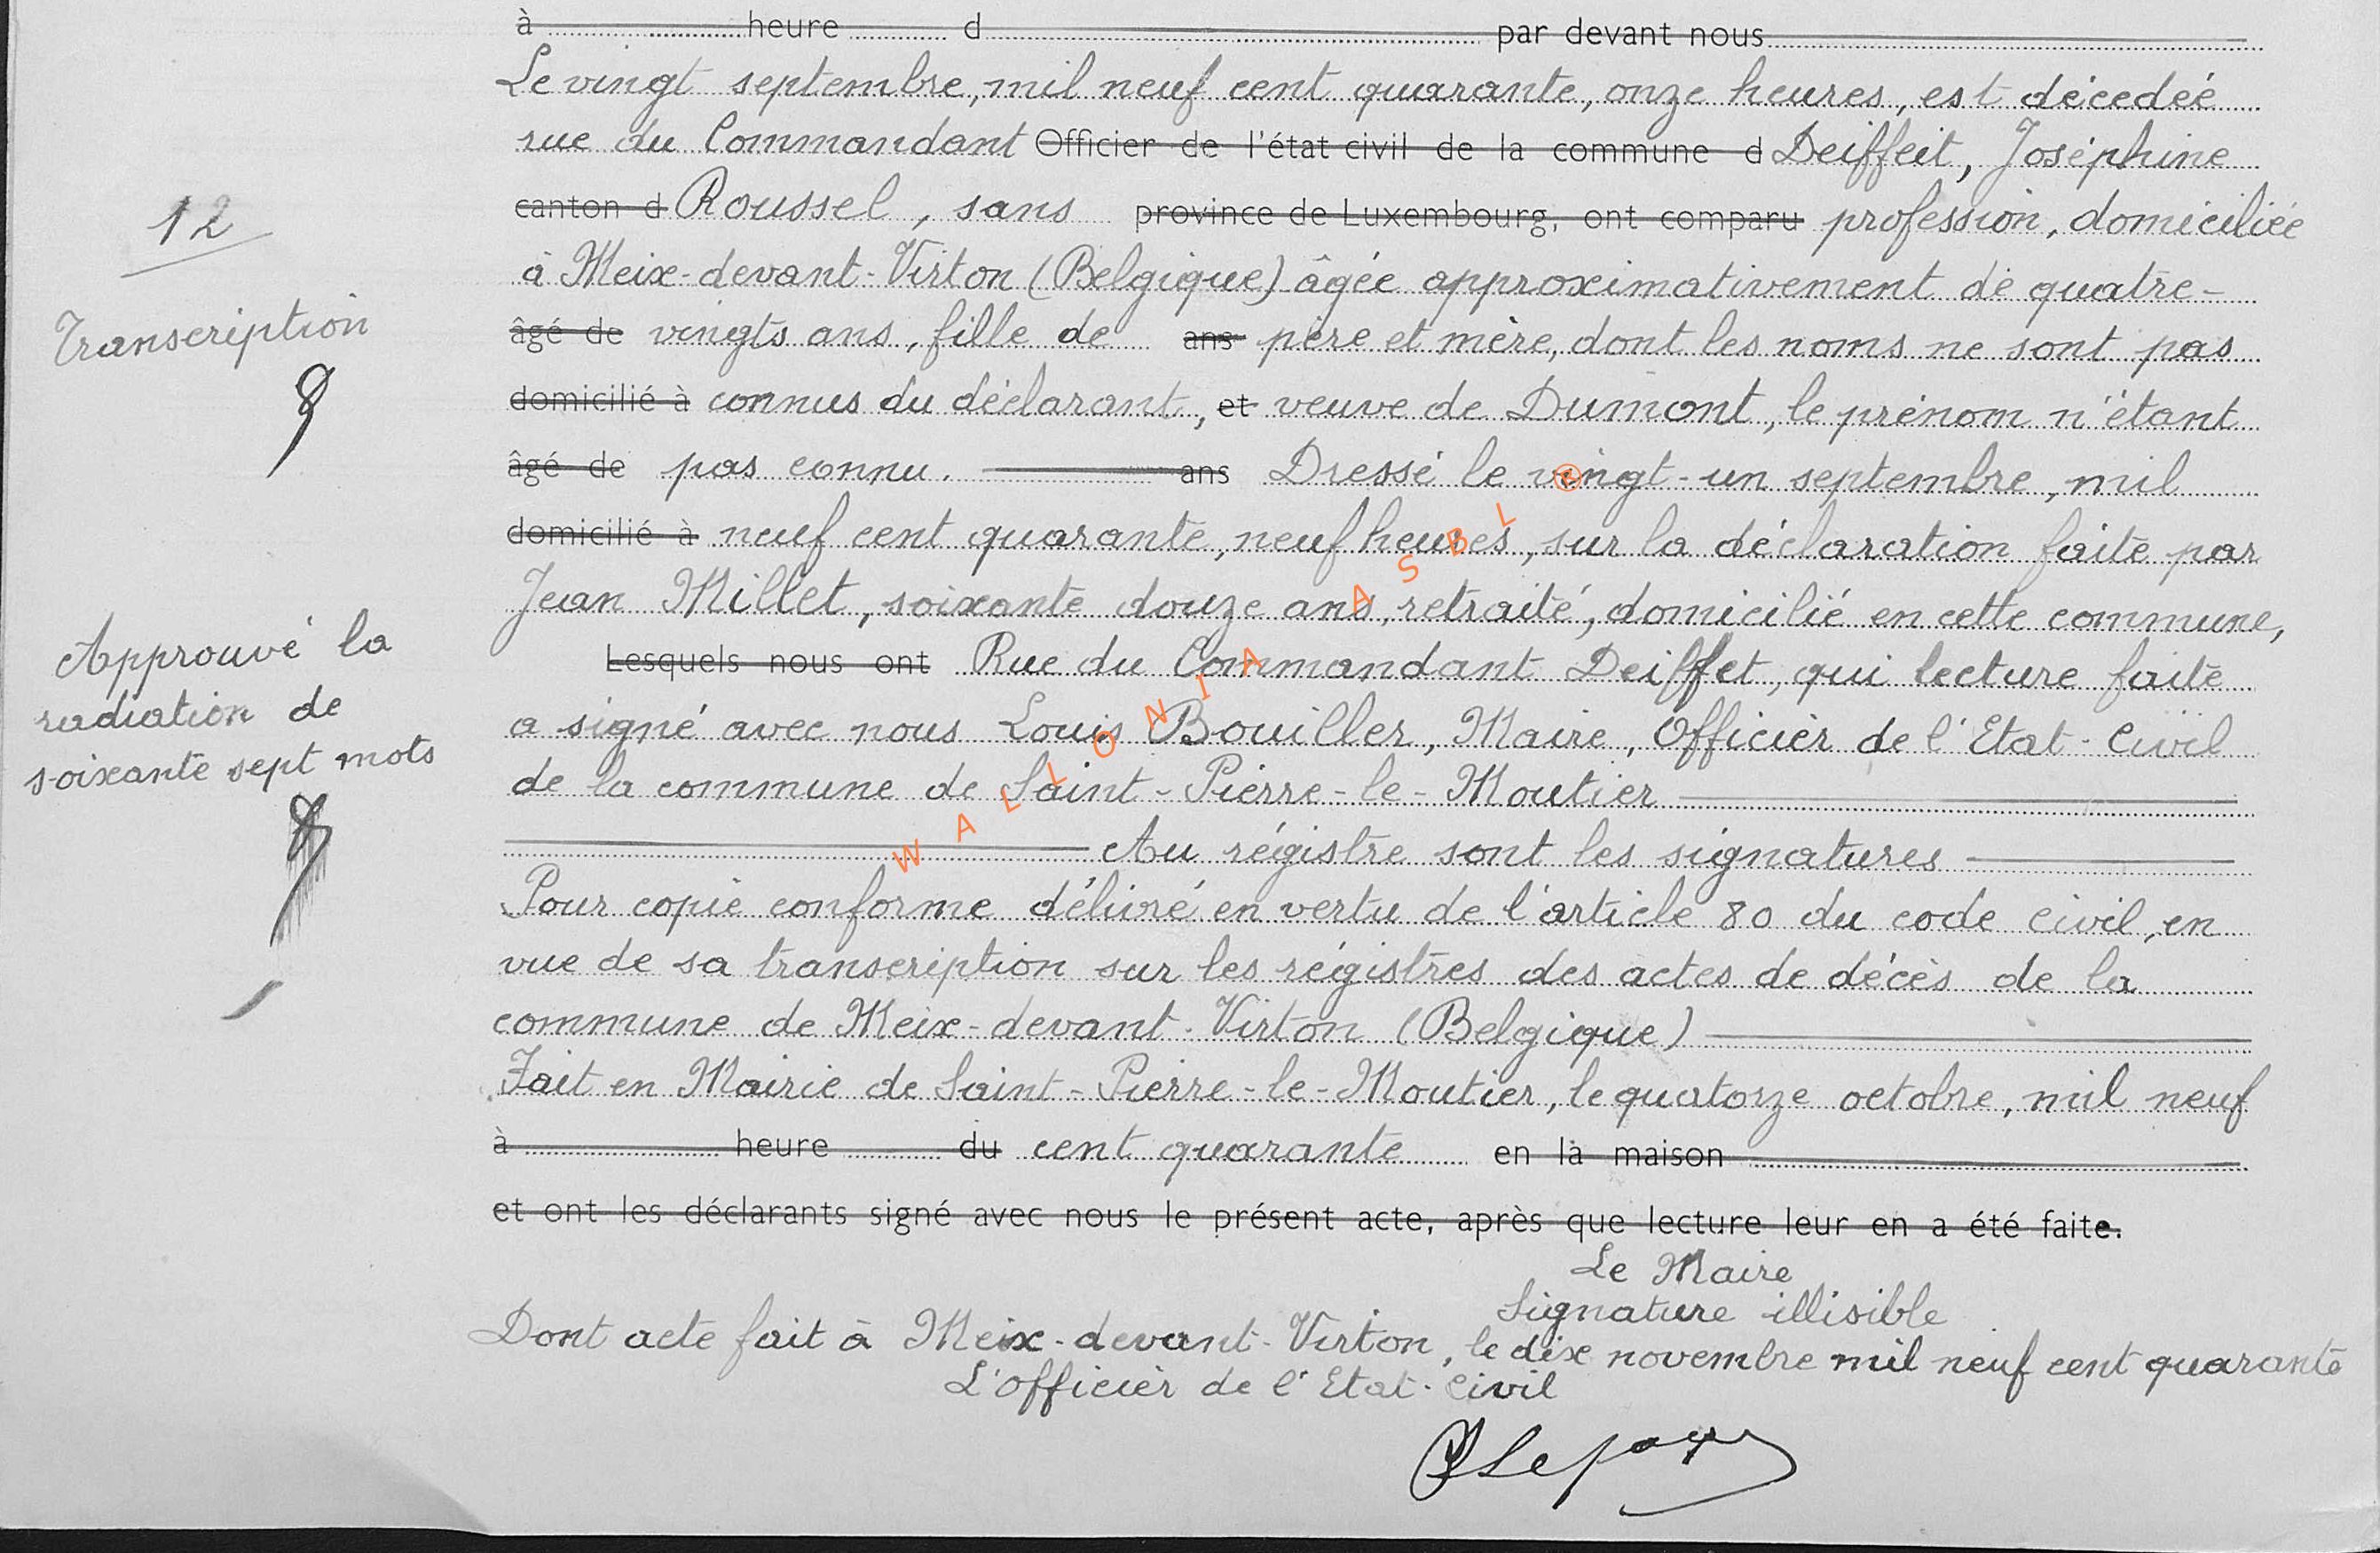 à heure d par devant nous
Le vingt septembre, mil neuf cent quarante, onze heures, est décedéé
rue du Commandant Officier de l'état civil de la commune d Deiffeit, Joséphine
canton d Roussel, sans province de Luxembourg, ont comparu profession, domiciliée
12
à Meix-devant-Virton (Belgique) âgée approximativement de quatre-
Transcription
âgé de vingts ans, fille de ans père et mère, dont les noms ne sont pas
domicilié à connus du déclarant, et veuve de Dumont, le prénom n'étant
âgé de pas connu. ans Dressé le vingt-un septembre, mil
domicilié à neuf cent quarante, neuf heures, sur la déclaration faite par
Jean Millet, soixante douze ans, retraité, domicilié en cette commune,
Approuvé la
radiation de
soixante sept mots
Lesquels nous ont Rue du Commandant Deiffet, qui lecture faite
a signé avec nous Louis Bouiller, Maire, Officier de l'Etat-Civil
de la commune de Saint-Pierre-le-Moutier
Au régistre sont les signatures
Pour copie conforme délivré en vertu de l'article 80 du code civil, en
vue de sa transcription sur les régistres des actes de décès de la
commune de Meix-devant-Virton (Belgique)
Fait en Mairie de Saint-Pierre-le-Moutier, le quatorze octobre, mil neuf
à heure du cent quarante en la maison
et ont les déclarants signé avec nous le présent acte, après que lecture leur en a été faite.
Le Maire
Signature illisible
Dont acte fait à Meix-devant-Virton, le dix novembre mil neuf cent quarante
L'Officier de l'Etat-Civil
WALLONIA ASBL ©